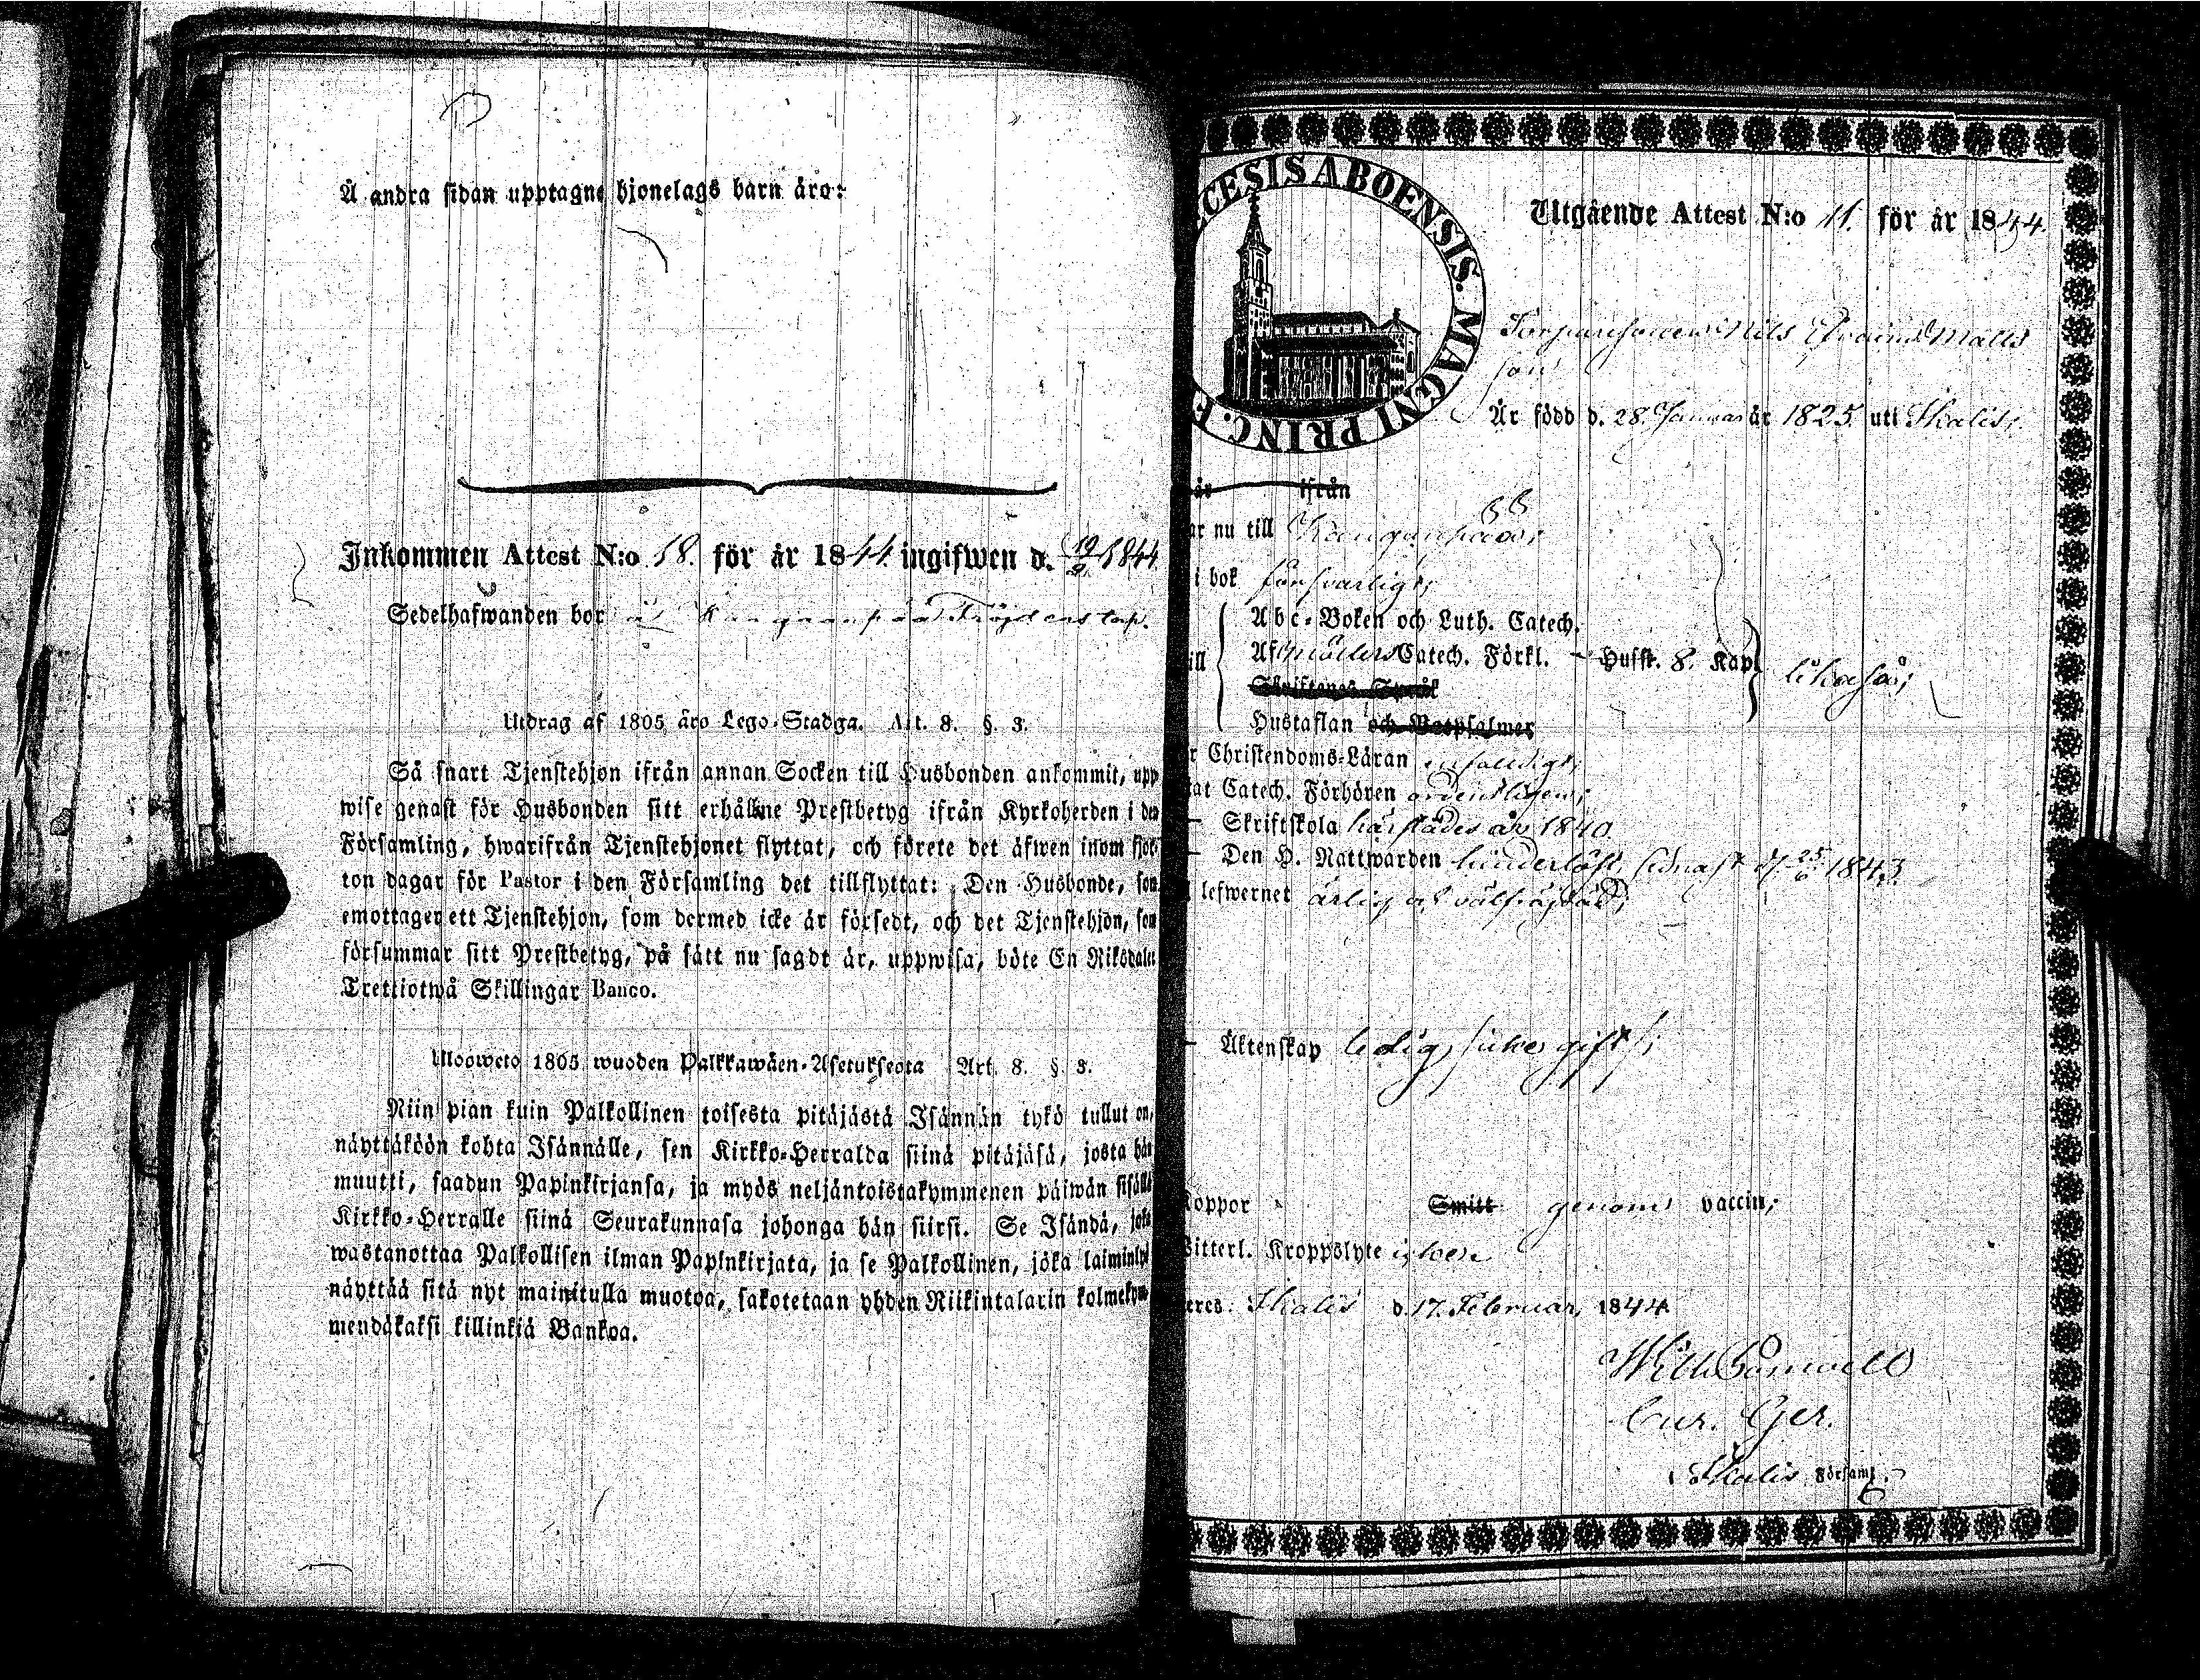 Å andra sidan upptagne hjonelags barn äro:
Inkommen Attest N:o 58. för år 1844 ingifwen d. 19/2 1844
Sedelhafwanden bor
Utdrag af 1805 års Lego-Stadga. Art. 8. §. 3.
Så snart Tjenstehjon ifrån annan Socken till Husbonden ankommit, upp
wise genast för Husbonden sitt erhållne Prestbetyg ifrån Kyrkoherden i den
Församling, hwarifrån Tjenstehjonet flyttat, och förete det äfwen inom fjor-
ton dagar för Pastor i den Församling det tillflyttat: Den Husbonde, som
emottager ett Tjenstehjon, som dermed icke är försedt, och det Tjenstehjon, som
försummar sitt Prestbetyg, på sätt nu sagdt är, uppwisa, böte En Riksdaler
Trettiotwå Skillingar Banco.
Ulosweto 1805 wuoden Palkkawäen-Asetuksesta Art. 8. §. 3.
Niin pian kuin Palkollinen toisesta pitäjästä Isännän tykö tullut on,
näyttäköön kohta Isännälle, sen Kirkko-Herralda siinä pitäjäsä, josta hän
muutti, saadun Papinkirjansa, ja myös neljäntoistakymmenen päiwän sisällä
Kirkko-Herralle siinä Seurakunnasa johonga hän siirsi. Se Isändä, joka
wastanottaa Palkollisen ilman Papinkirjata, ja se Palkollinen, joka laiminlyö
näyttää sitä nyt mainitulla muotoa, sakotetaan yhden Riikintalarin kolmekym-
mendäkaksi killinkiä Bankoa.
CESIS ABOENSIS. MAGNI PRINC. F
Utgående Attest N:o 11. för år 1844.
Torparesonen Nils Efraim Matts
son
Är född d. 28. Januari år 1825. uti Skalis,
år ifrån
ar nu till Kanganpää,
i bok försvarligt;
ill Abc-Boken och Luth. Catech.
Af Möllers Catech. Förkl. - Husst. 8. Kap. likaså;
Skriftenes Språk
Hustaflan och Botpsalmer
r Christendoms-Läran enfaldigt;
at Catech. Förhören ordentligen;
Skriftskola härstädes år 1840.
Den H. Nattwarden hinderlöst, sednast d. 25/6 1843.
lefwernet ärlig och välfräjdad;
Äktenskap ledig, icke gift;
oppor Smitt genom vaccin;
itterl. Kroppslyte
eres. Skalis d. 17. Februar, 1844.
Cur. Ger.
Skalis Församl.